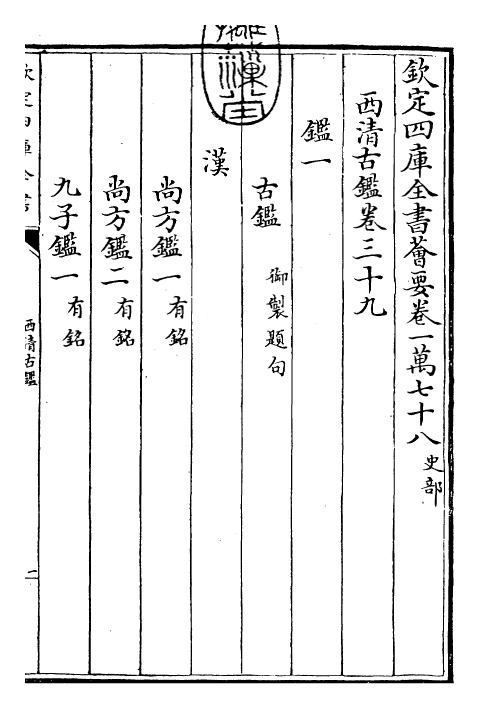 欽定四庫全書薈要卷一萬七十八史部
西清古鑑卷三十九
鑑一
古鑑御製題句
漢
尚方鑑一有銘
尚方鑑二有銘
九子鑑一有銘
欽定四庫全書
西清古鑑
一